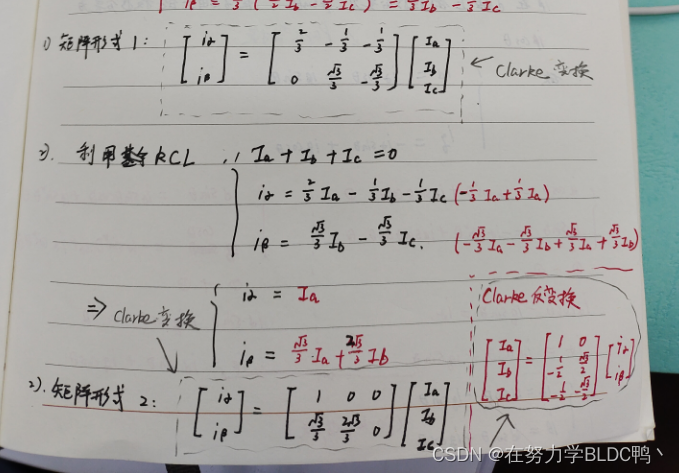 iβ = 2/3 (√3/2 Ib − √3/2 Ic) = √3/3 Ib − √3/3 Ic
1) 矩阵形式 1: [iα iβ] = [2/3 −1/3 −1/3; 0 √3/3 −√3/3] [Ia Ib Ic] ← Clarke 变换
2). 利用基尔KCL, ∵ Ia + Ib + Ic = 0
iα = 2/3 Ia − 1/3 Ib − 1/3 Ic (−1/3 Ia + 1/3 Ia)
iβ = √3/3 Ib − √3/3 Ic. (−√3/3 Ia − √3/3 Ib + √3/3 Ia + √3/3 Ib)
⇒ Clarke 变换
iα = Ia
iβ = √3/3 Ia + 2√3/3 Ib
Clarke 反变换
[Ia Ib Ic] = [1 0; −1/2 √3/2; −1/2 −√3/2] [iα iβ]
2). 矩阵形式 2: [iα iβ] = [1 0 0; √3/3 2√3/3 0] [Ia Ib Ic]
CSDN @在努力学BLDC鸭丶